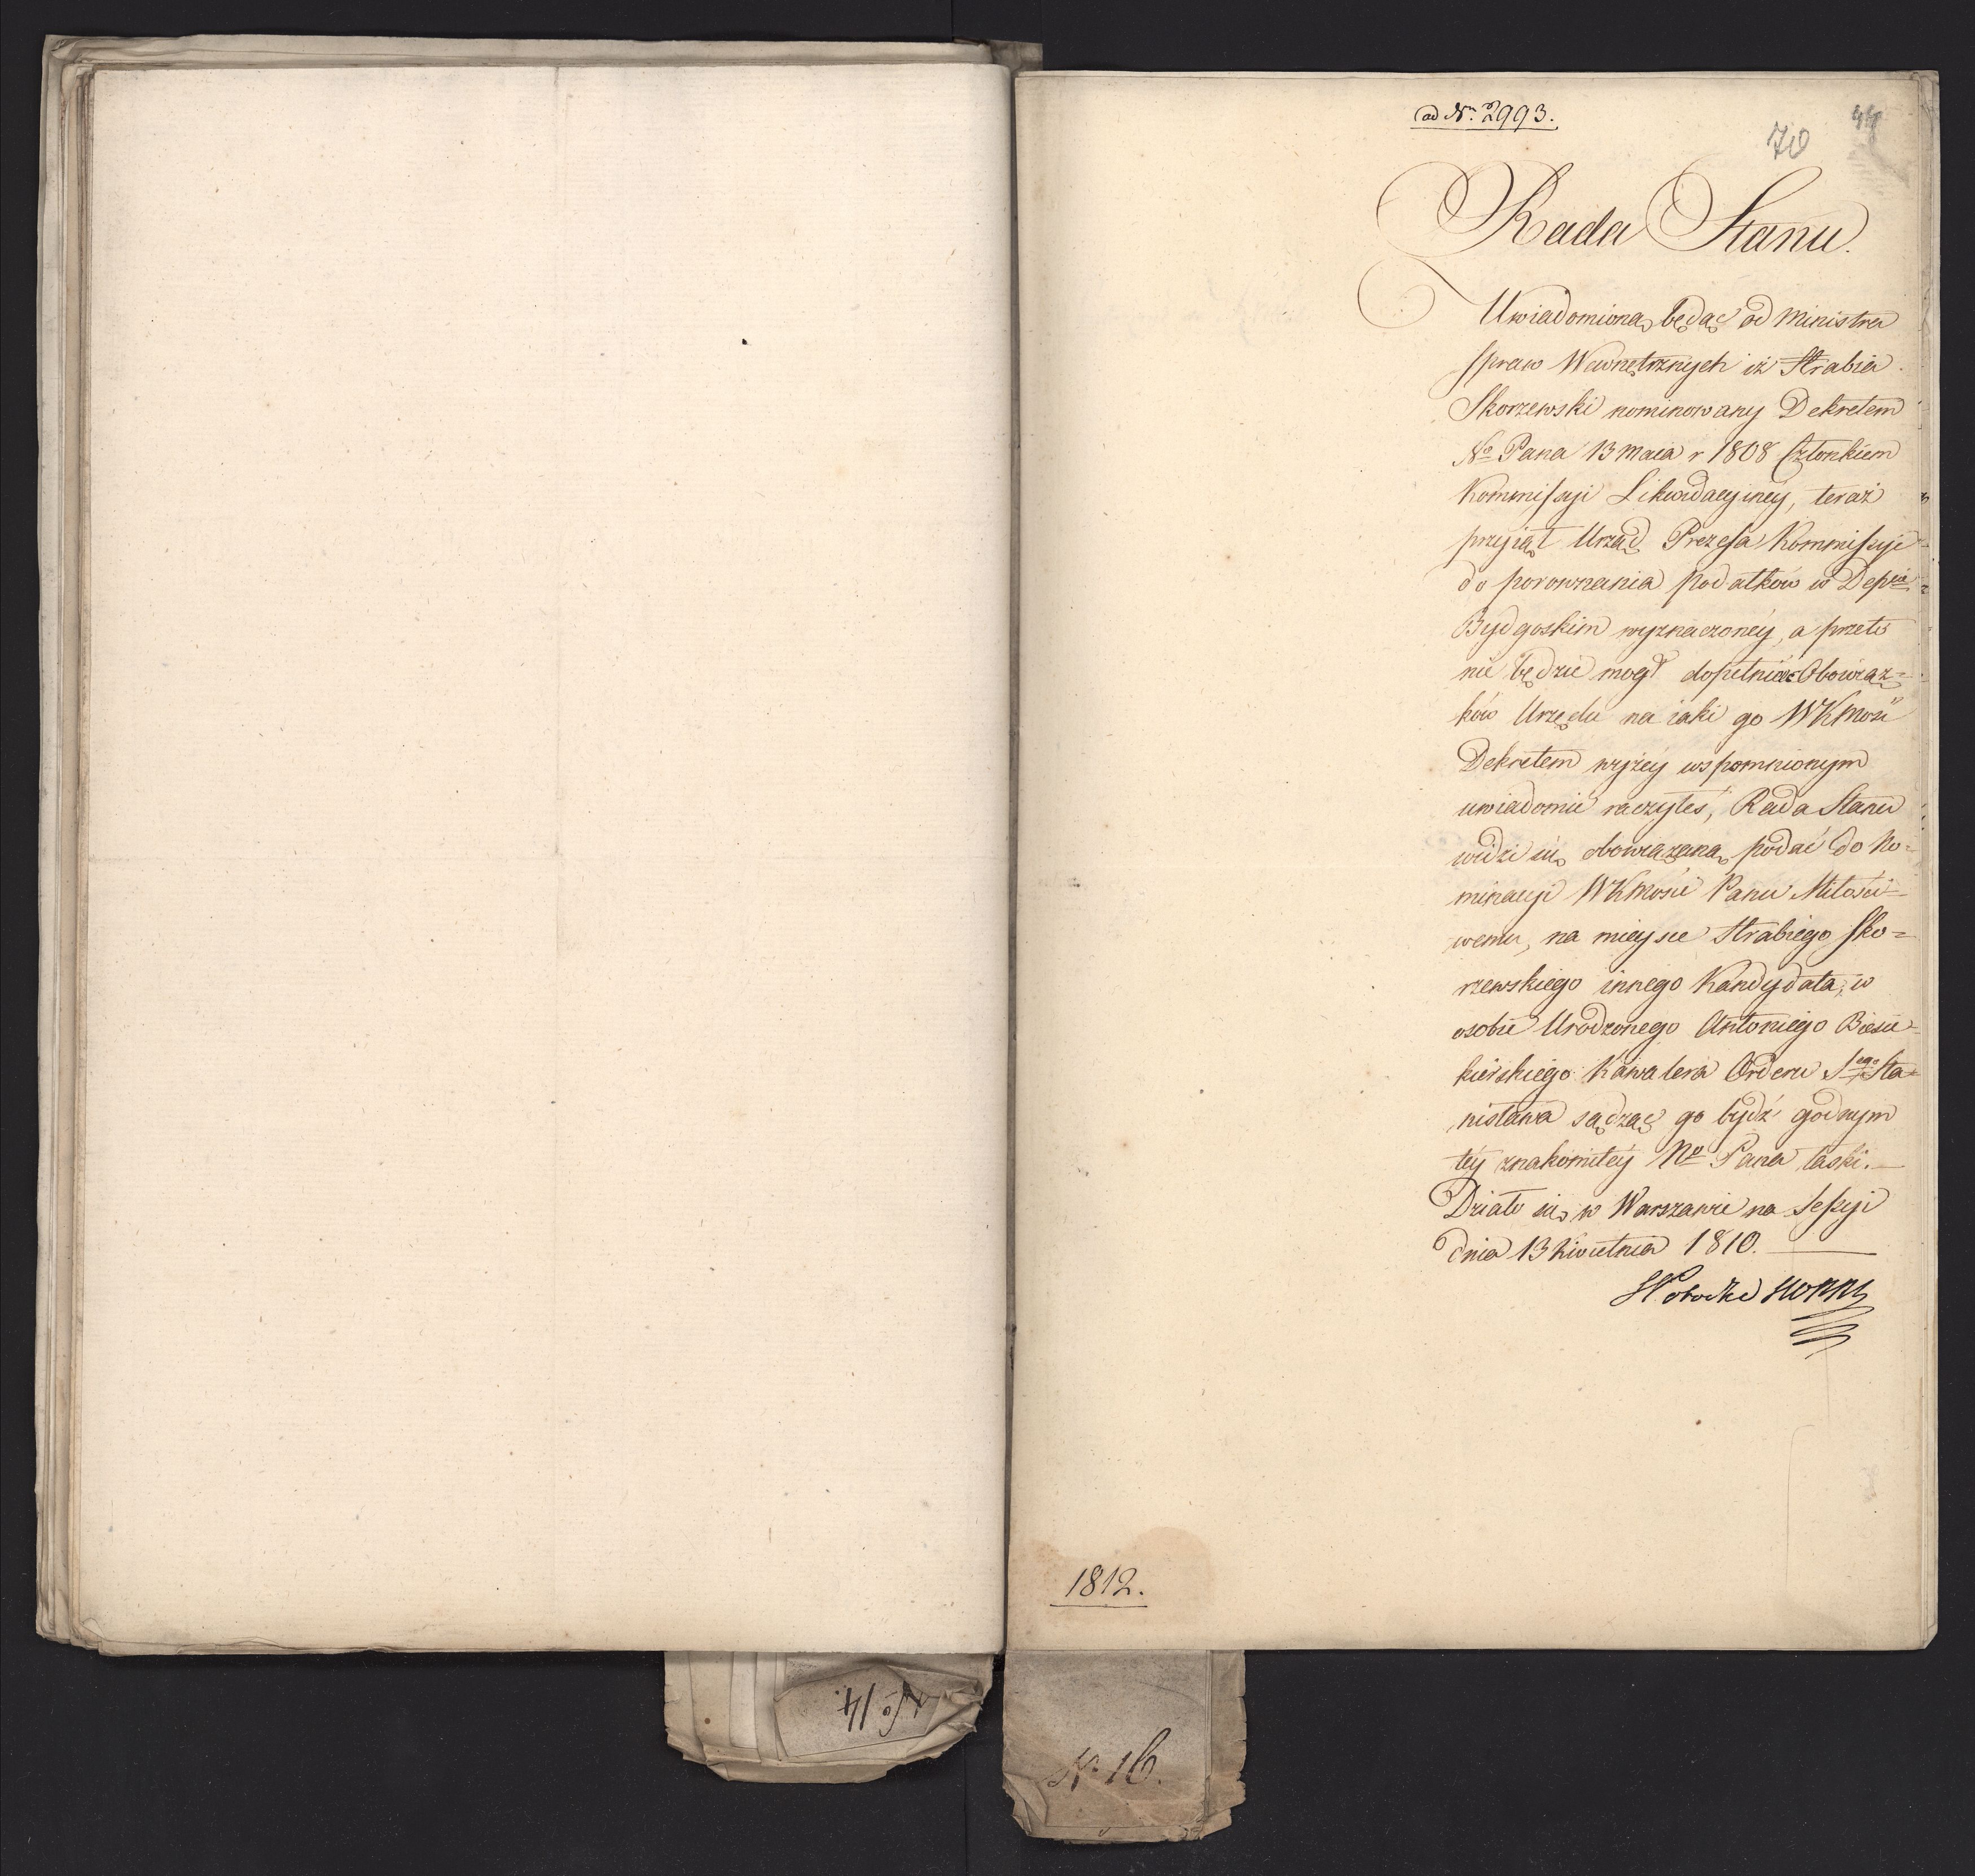 ad Nr. 2993.
70
44
Rada Stanu.
Uwiadomioną będąc od Ministra
spraw Wewnętrznych iż Hrabia
Skorzewski nominowany Dekretem
No Pana 13 Maia r 1808 Członkiem
Kommissyi Likwidacyiney, teraż
przyiął Urząd Prezesa Kommissyi
do porownania podatków w Depcie
Bydgoskim wyznaczoney, a przeto
nie będzie mogł dopełniać Obowiąz=
ków Urzędu na iaki go WKMość
Dekretem wyżey wspomnionym
uwiadomić raczyłeś, Rada Stanu
widzi się obowiązaną podać do No=
minacyi WKMości Panu Miłości=
wemu, na mieysce Hrabiego Sko=
rzewskiego innego Kandydata, w
osobie Urodzonego Antoniego Biesie=
kierskiego Kawalera Orderu Sego Sta=
nisława sądząc go bydź godnym
téy znakomitey No Pana łaski.—
Działo się w Warszawie na Sessyi
dnia 13 Kwietnia 1810.
1812.
No 14.
N. 16.